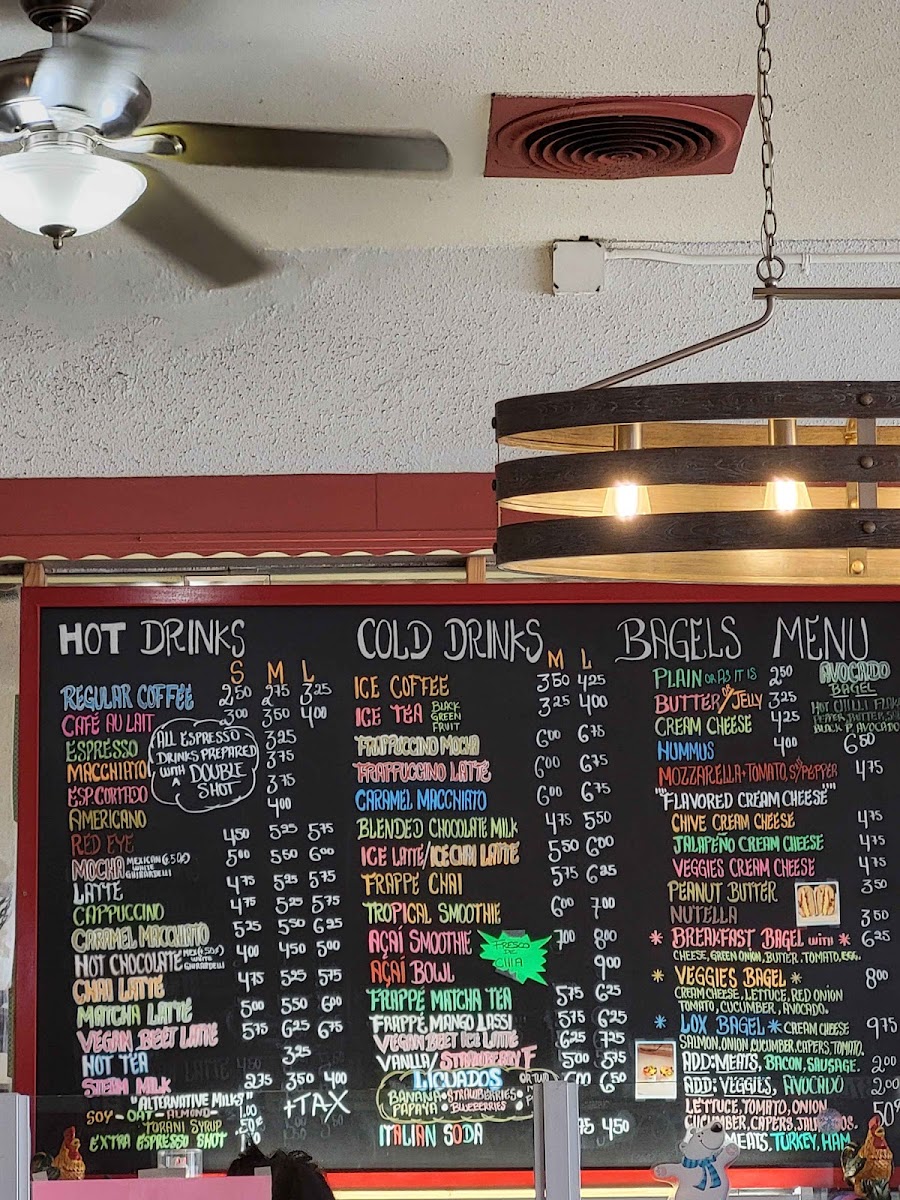 HOT DRINKS
S M L
REGULAR COFFEE 2.50 2.75 3.25
CAFÉ AU LAIT 3.00 3.50 4.00
ESPRESSO 3.25
MACCHIATO 3.75
ESP.CORTADO 3.75
AMERICANO 4.00
ALL ESPRESSO
DRINKS PREPARED
WITH A DOUBLE
SHOT
RED EYE 4.50 5.25 5.75
MOCHA MEXICAN (6.50) WHITE GHIRARDELLI 5.00 5.50 6.00
LATTE 4.75 5.25 5.75
CAPPUCCINO 4.75 5.25 5.75
CARAMEL MACCHIATO 5.25 5.50 6.25
HOT CHOCOLATE WHITE GHIRARDELLI 4.00 4.50 5.00
CHAI LATTE 4.75 5.25 5.75
MATCHA LATTE 5.00 5.50 6.00
VEGAN BEET LATTE 5.75 6.25 6.75
HOT TEA 3.25
STEAM MILK 2.75 3.50 4.00
"ALTERNATIVE MILKS"
SOY - OAT - ALMOND 1.00
TORANI SYRUP
EXTRA ESPRESSO SHOT
+TAX
COLD DRINKS
M L
ICE COFFEE 3.50 4.25
ICE TEA BLACK GREEN FRUIT 3.25 4.00
FRAPPUCCINO MOCHA 6.00 6.75
FRAPPUCCINO LATTE 6.00 6.75
CARAMEL MACCHIATO 6.00 6.75
BLENDED CHOCOLATE MILK 4.75 5.50
ICE LATTE/ICE CHAI LATTE 5.50 6.00
FRAPPE CHAI 5.75 6.25
TROPICAL SMOOTHIE 6.00 7.00
AÇAÍ SMOOTHIE 7.00 8.00
AÇAÍ BOWL 9.00
FRESCO
DE
CHIA
FRAPPE MATCHA TEA 5.75 6.25
FRAPPE MANGO LASSI 5.75 6.25
VEGAN BEET ICE LATTE 6.25 7.25
VANILLA/STRAWBERRY F 5.00 5.75
LICUADOS 6.50
BANANA • STRAWBERRIES •
PAPAYA • BLUEBERRIES
ITALIAN SODA 4.50
BAGELS MENU
PLAIN OR AS IT IS 2.50
BUTTER OR JELLY 3.25
CREAM CHEESE 4.25
HUMMUS 4.00
AVOCADO
BAGEL
HOT CHILLI
PEPPER, BUTTER,
BLACK P, AVOCADO
6.50
MOZZARELLA+TOMATO, S/PEPPER 4.75
"FLAVORED CREAM CHEESE"
CHIVE CREAM CHEESE 4.75
JALAPEÑO CREAM CHEESE 4.75
VEGGIES CREAM CHEESE 4.75
PEANUT BUTTER 3.50
NUTELLA 3.50
* BREAKFAST BAGEL WITH * 6.25
CHEESE, GREEN ONION, BUTTER. TOMATO, EGG.
* VEGGIES BAGEL * 8.00
CREAM CHEESE, LETTUCE, RED ONION
TOMATO, CUCUMBER, AVOCADO.
* LOX BAGEL * CREAM CHEESE 9.75
SALMON, ONION, CUCUMBER, CAPERS, TOMATO.
ADD: MEATS, BACON, SAUSAGE. 2.00
ADD: VEGGIES, AVOCADO 2.00
LETTUCE, TOMATO, ONION
CUCUMBER, CAPERS,
MEATS TURKEY, HAM